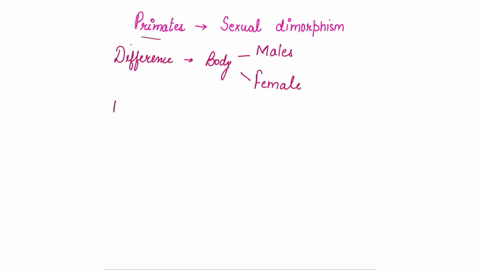 Primates → Sexual dimorphism
Difference → Body – Males
Female